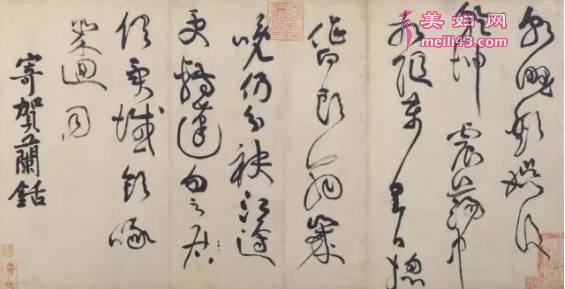 朝野歡娛後
乾坤震蕩中
相隨萬里日總
作白頭翁歲
晚仍分袂江邊
更轉蓬勿云居
俱異域飲啄
幾迴同
寄賀蘭銛
美妇网
meili43.com